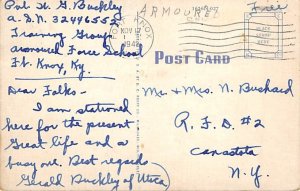 Pvt. H. G. Buckley
A.S.N. 32446552
Training Group
Armored Force School
Ft. Knox, Ky.
Dear Folks-
I am stationed
here for the present
Great life and a
busy one. Best regards
Gerald Buckley of Utica
FORT KNOX
NOV
1942
ARMOURED
Free
PLACE
STAMP
HERE
POST CARD
Mr + Mrs. N. Bushard
R.F.D. #2
Canastota
N.Y.